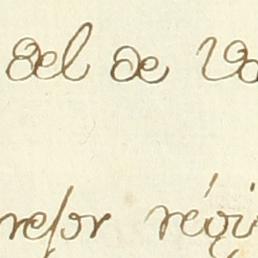 del de Va
resor régi